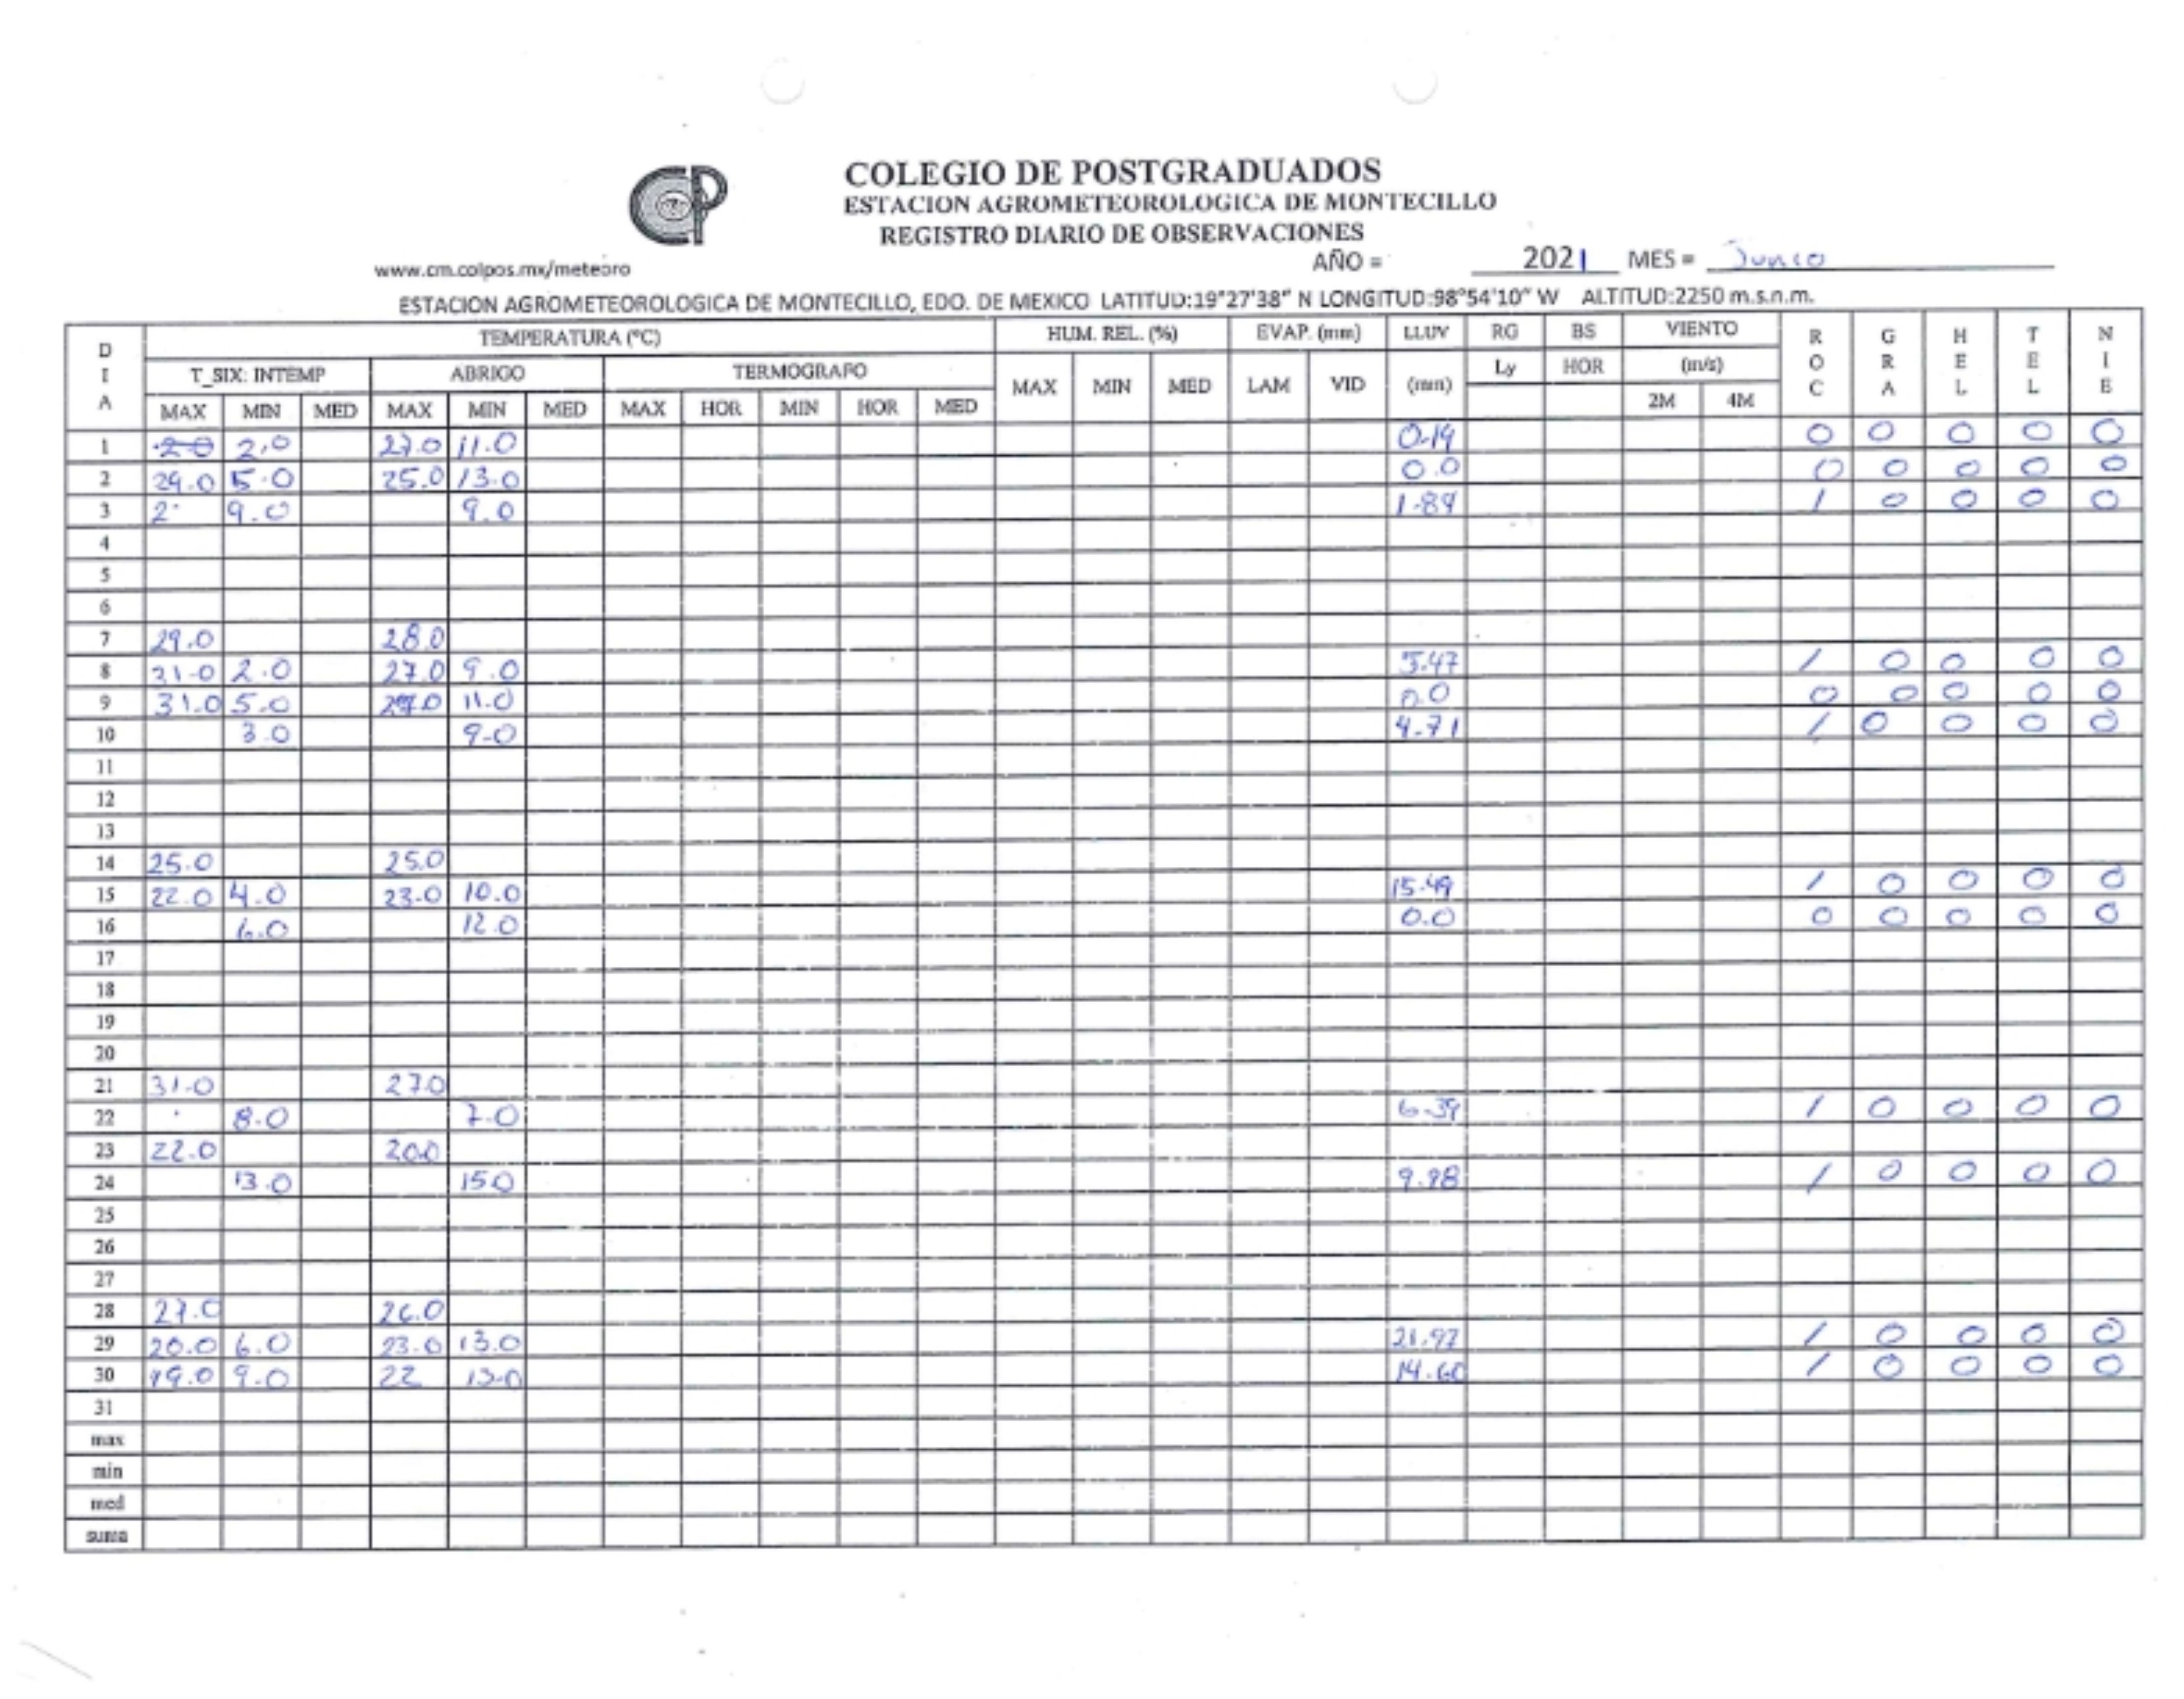 COLEGIO DE POSTGRADUADOS
ESTACION AGROMETEOROLOGICA DE MONTECILLO
REGISTRO DIARIO DE OBSERVACIONES
www.cm.colpos.mx/meteoro AÑO = 2021 MES = Junio
ESTACION AGROMETEOROLOGICA DE MONTECILLO, EDO. DE MEXICO LATITUD:19°27'38" N LONGITUD:98°54'10" W ALTITUD:2250 m.s.n.m.
DIA TEMPERATURA (ºC) HUM. REL. (%) EVAP. (mm) LLUV RG BS VIENTO ROC GRA HEL TEL NIE
T_SIX: INTEMP ABRIGO TERMOGRAFO MAX MIN MED LAM VID (mm) Ly HOR (m/s)
MAX MIN MED MAX MIN MED MAX HOR MIN HOR MED 2M 4M
1 2.0 27.0 11.0 0.19 0 0 0 0 0
2 29.0 5.0 25.0 13.0 0.0 0 0 0 0 0
3 2 9.0 9.0 1.89 / 0 0 0 0
4
5
6
7 29.0 28.0
8 31.0 2.0 27.0 9.0 5.47 / 0 0 0 0
9 31.0 5.0 11.0 0.0 0 0 0 0 0
10 3.0 9.0 4.71 / 0 0 0 0
11
12
13
14 25.0 25.0
15 22.0 4.0 23.0 10.0 15.49 / 0 0 0 0
16 6.0 12.0 0.0 0 0 0 0 0
17
18
19
20
21 31.0 27.0
22 8.0 7.0 6.39 / 0 0 0 0
23 22.0 20.0
24 13.0 15.0 9.98 / 0 0 0 0
25
26
27
28 27.0 26.0
29 20.0 6.0 23.0 13.0 21.97 / 0 0 0 0
30 19.0 9.0 22 13.0 14.60 / 0 0 0 0
31
max
min
med
suma